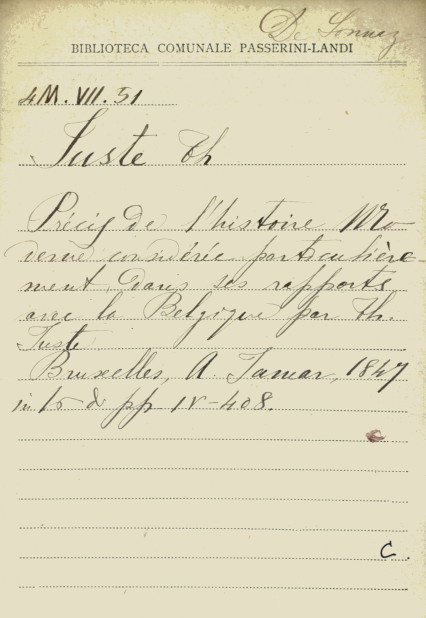 De
BIBLIOTECA COMUNALE PASSERINI-LANDI
4M. VII. 51
Juste Th
Précis de l'histoire Mo-
derne considérée particulière-
ment dans ses rapports
avec la Belgique par Th.
Juste
Bruxelles, A. Jamar, 1847
in 16 d pp IV-408.
C.